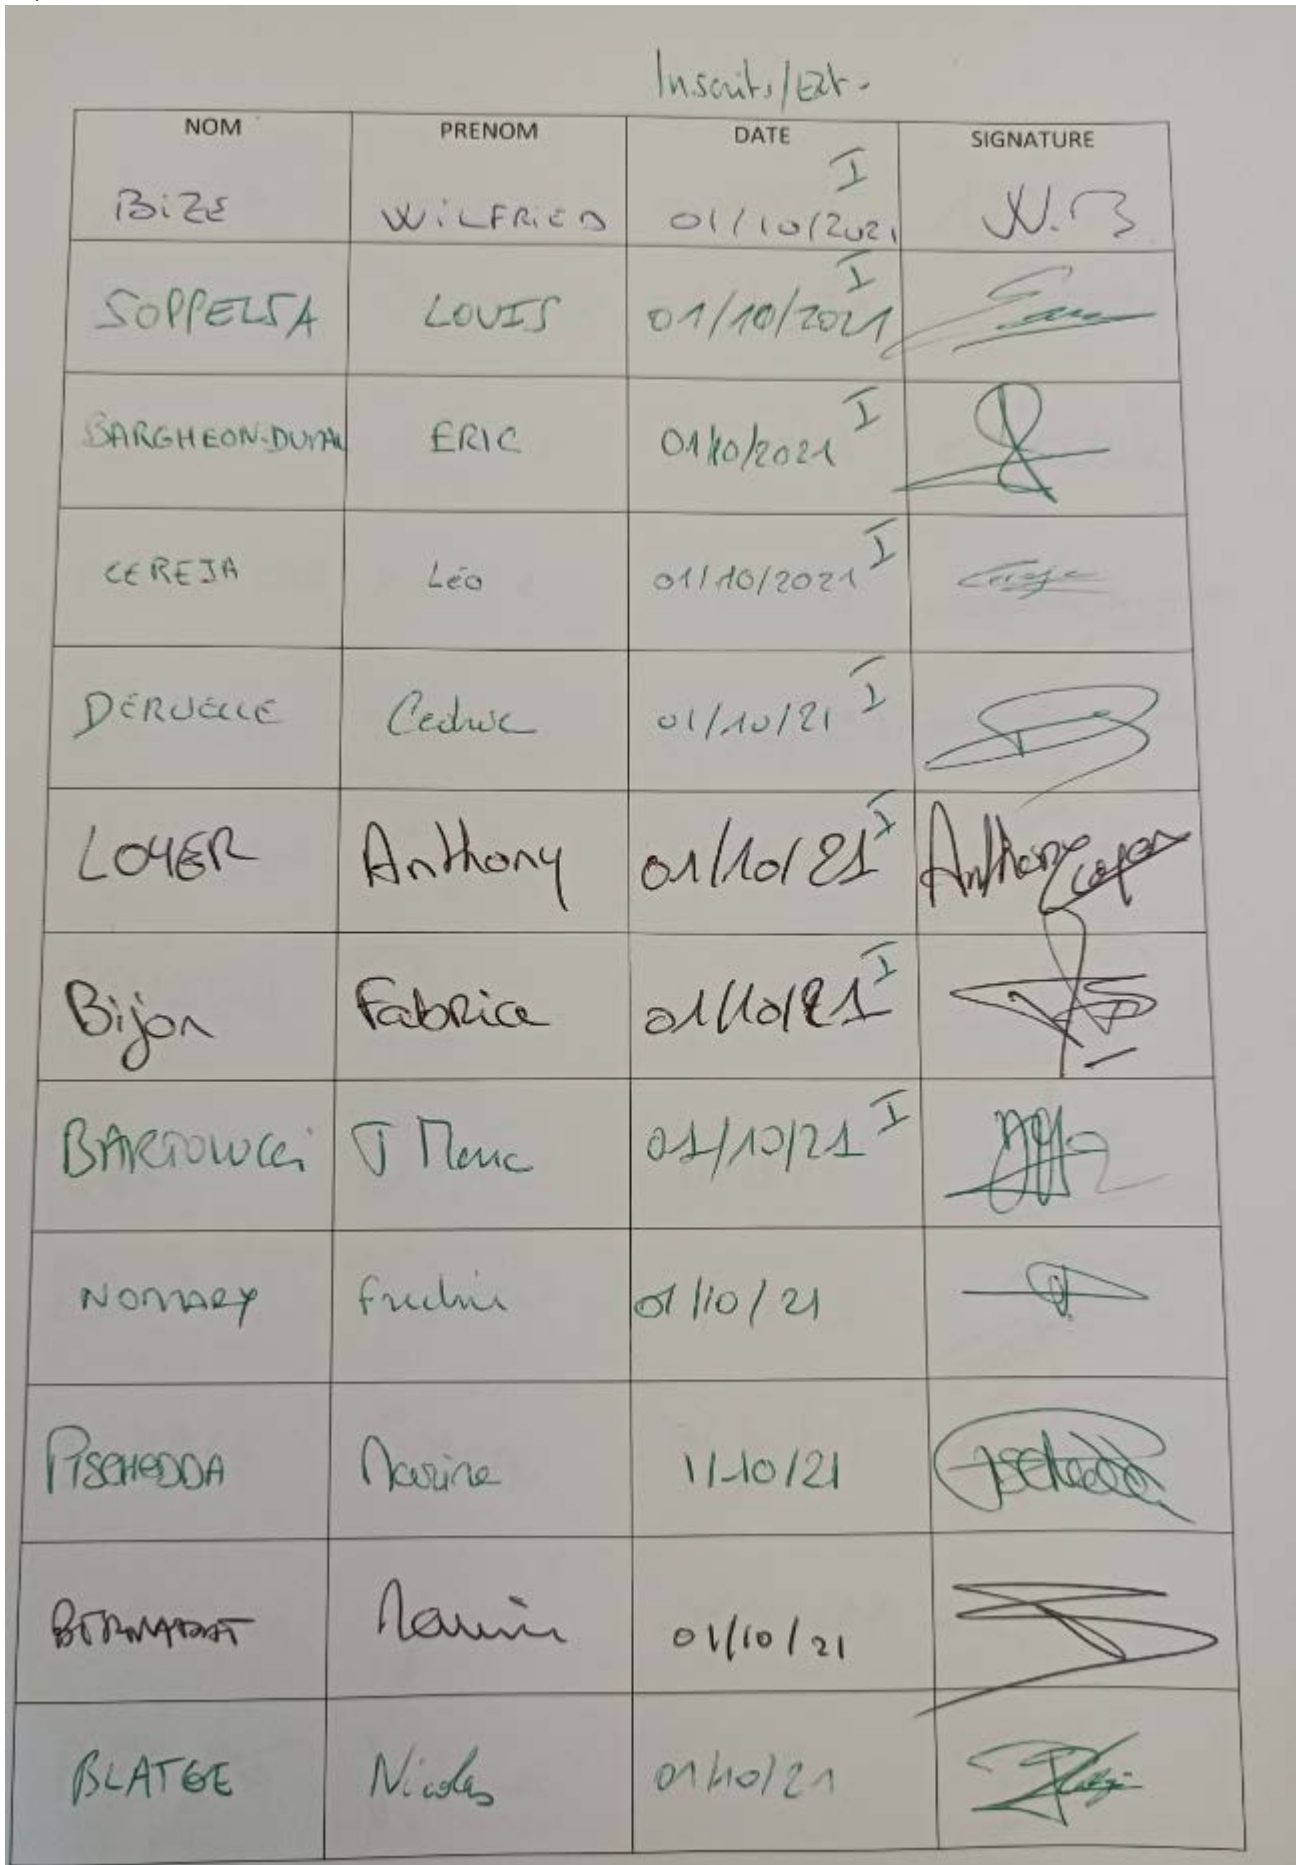 Inscrits/Ext.
NOM PRENOM DATE SIGNATURE
I
BiZE WiLFRiED 01/10/2021 W.B
I
SOPPELSA LOUIS 01/10/2021
I
BARGHEON-DUVAL ERIC 01/10/2021
I
CEREJA Léo 01/10/2021
I
DERUELLE Cedric 01/10/21
I
LOYER Anthony 01/10/21 Anthony Loyer
I
Bijon Fabrice 01/10/21
I
BARTOLUCCi J Marc 01/10/21
NOMARY 01/10/21
PISCHEDDA Marine 1/10/21 Pischedda
01/10/21
BLATGE Nicolas 01/10/21